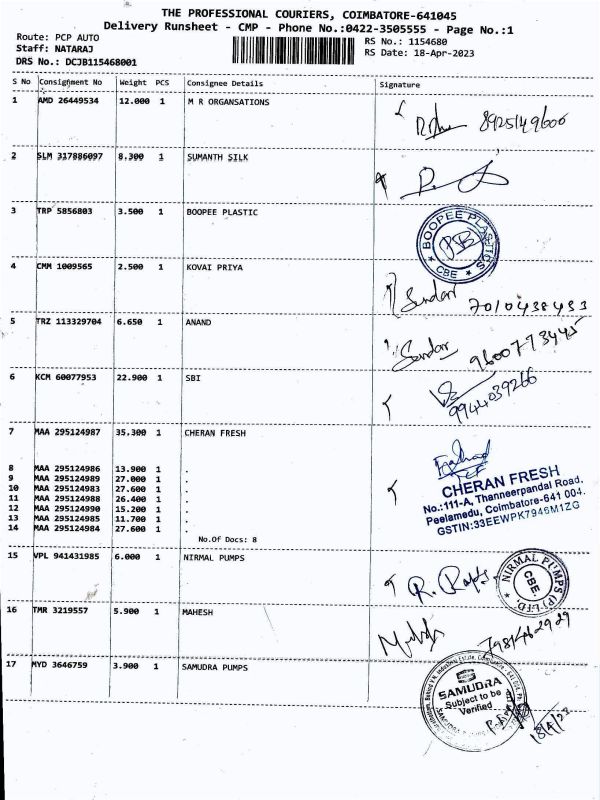 THE PROFESSIONAL COURIERS, COIMBATORE-641045
Delivery Runsheet - CMP - Phone No.:0422-3505555 - Page No.:1
Route: PCP AUTO
Staff: NATARAJ
DRS No.: DCJB115468001
RS No.: 1154680
RS Date: 18-Apr-2023
S No Consignment No Weight PCS Consignee Details Signature
1 AMD 26449534 12.000 1 M R ORGANSATIONS
8925149600
2 SLM 317886097 8.300 1 SUMANTH SILK
3 TRP 5856803 3.500 1 BOOPEE PLASTIC
BOOPEE PLASTICS
CBE
4 CMM 1009565 2.500 1 KOVAI PRIYA
Sundari 7010438493
5 TRZ 113329704 6.650 1 ANAND
Sundar 9600773445
6 KCM 60077953 22.900 1 SBI
9944039266
7 MAA 295124987 35.300 1 CHERAN FRESH
8 MAA 295124986 13.900 1 .
9 MAA 295124989 27.000 1 .
10 MAA 295124983 27.600 1 .
11 MAA 295124988 26.400 1 .
12 MAA 295124990 15.200 1 .
13 MAA 295124985 11.700 1 .
14 MAA 295124984 27.600 1 .
No.Of Docs: 8
CHERAN FRESH
No.:111-A, Thanneerpandal Road.
Peelamedu, Coimbatore-641 004.
GSTIN:33EEWPK7946M1ZG
15 VPL 941431985 6.000 1 NIRMAL PUMPS
NIRMAL PUMPS (P) LTD
CBE
16 TMR 3219557 5.900 1 MAHESH
17 MYD 3646759 3.900 1 SAMUDRA PUMPS
SAMUDRA
Subject to be
Verified
18/4/23